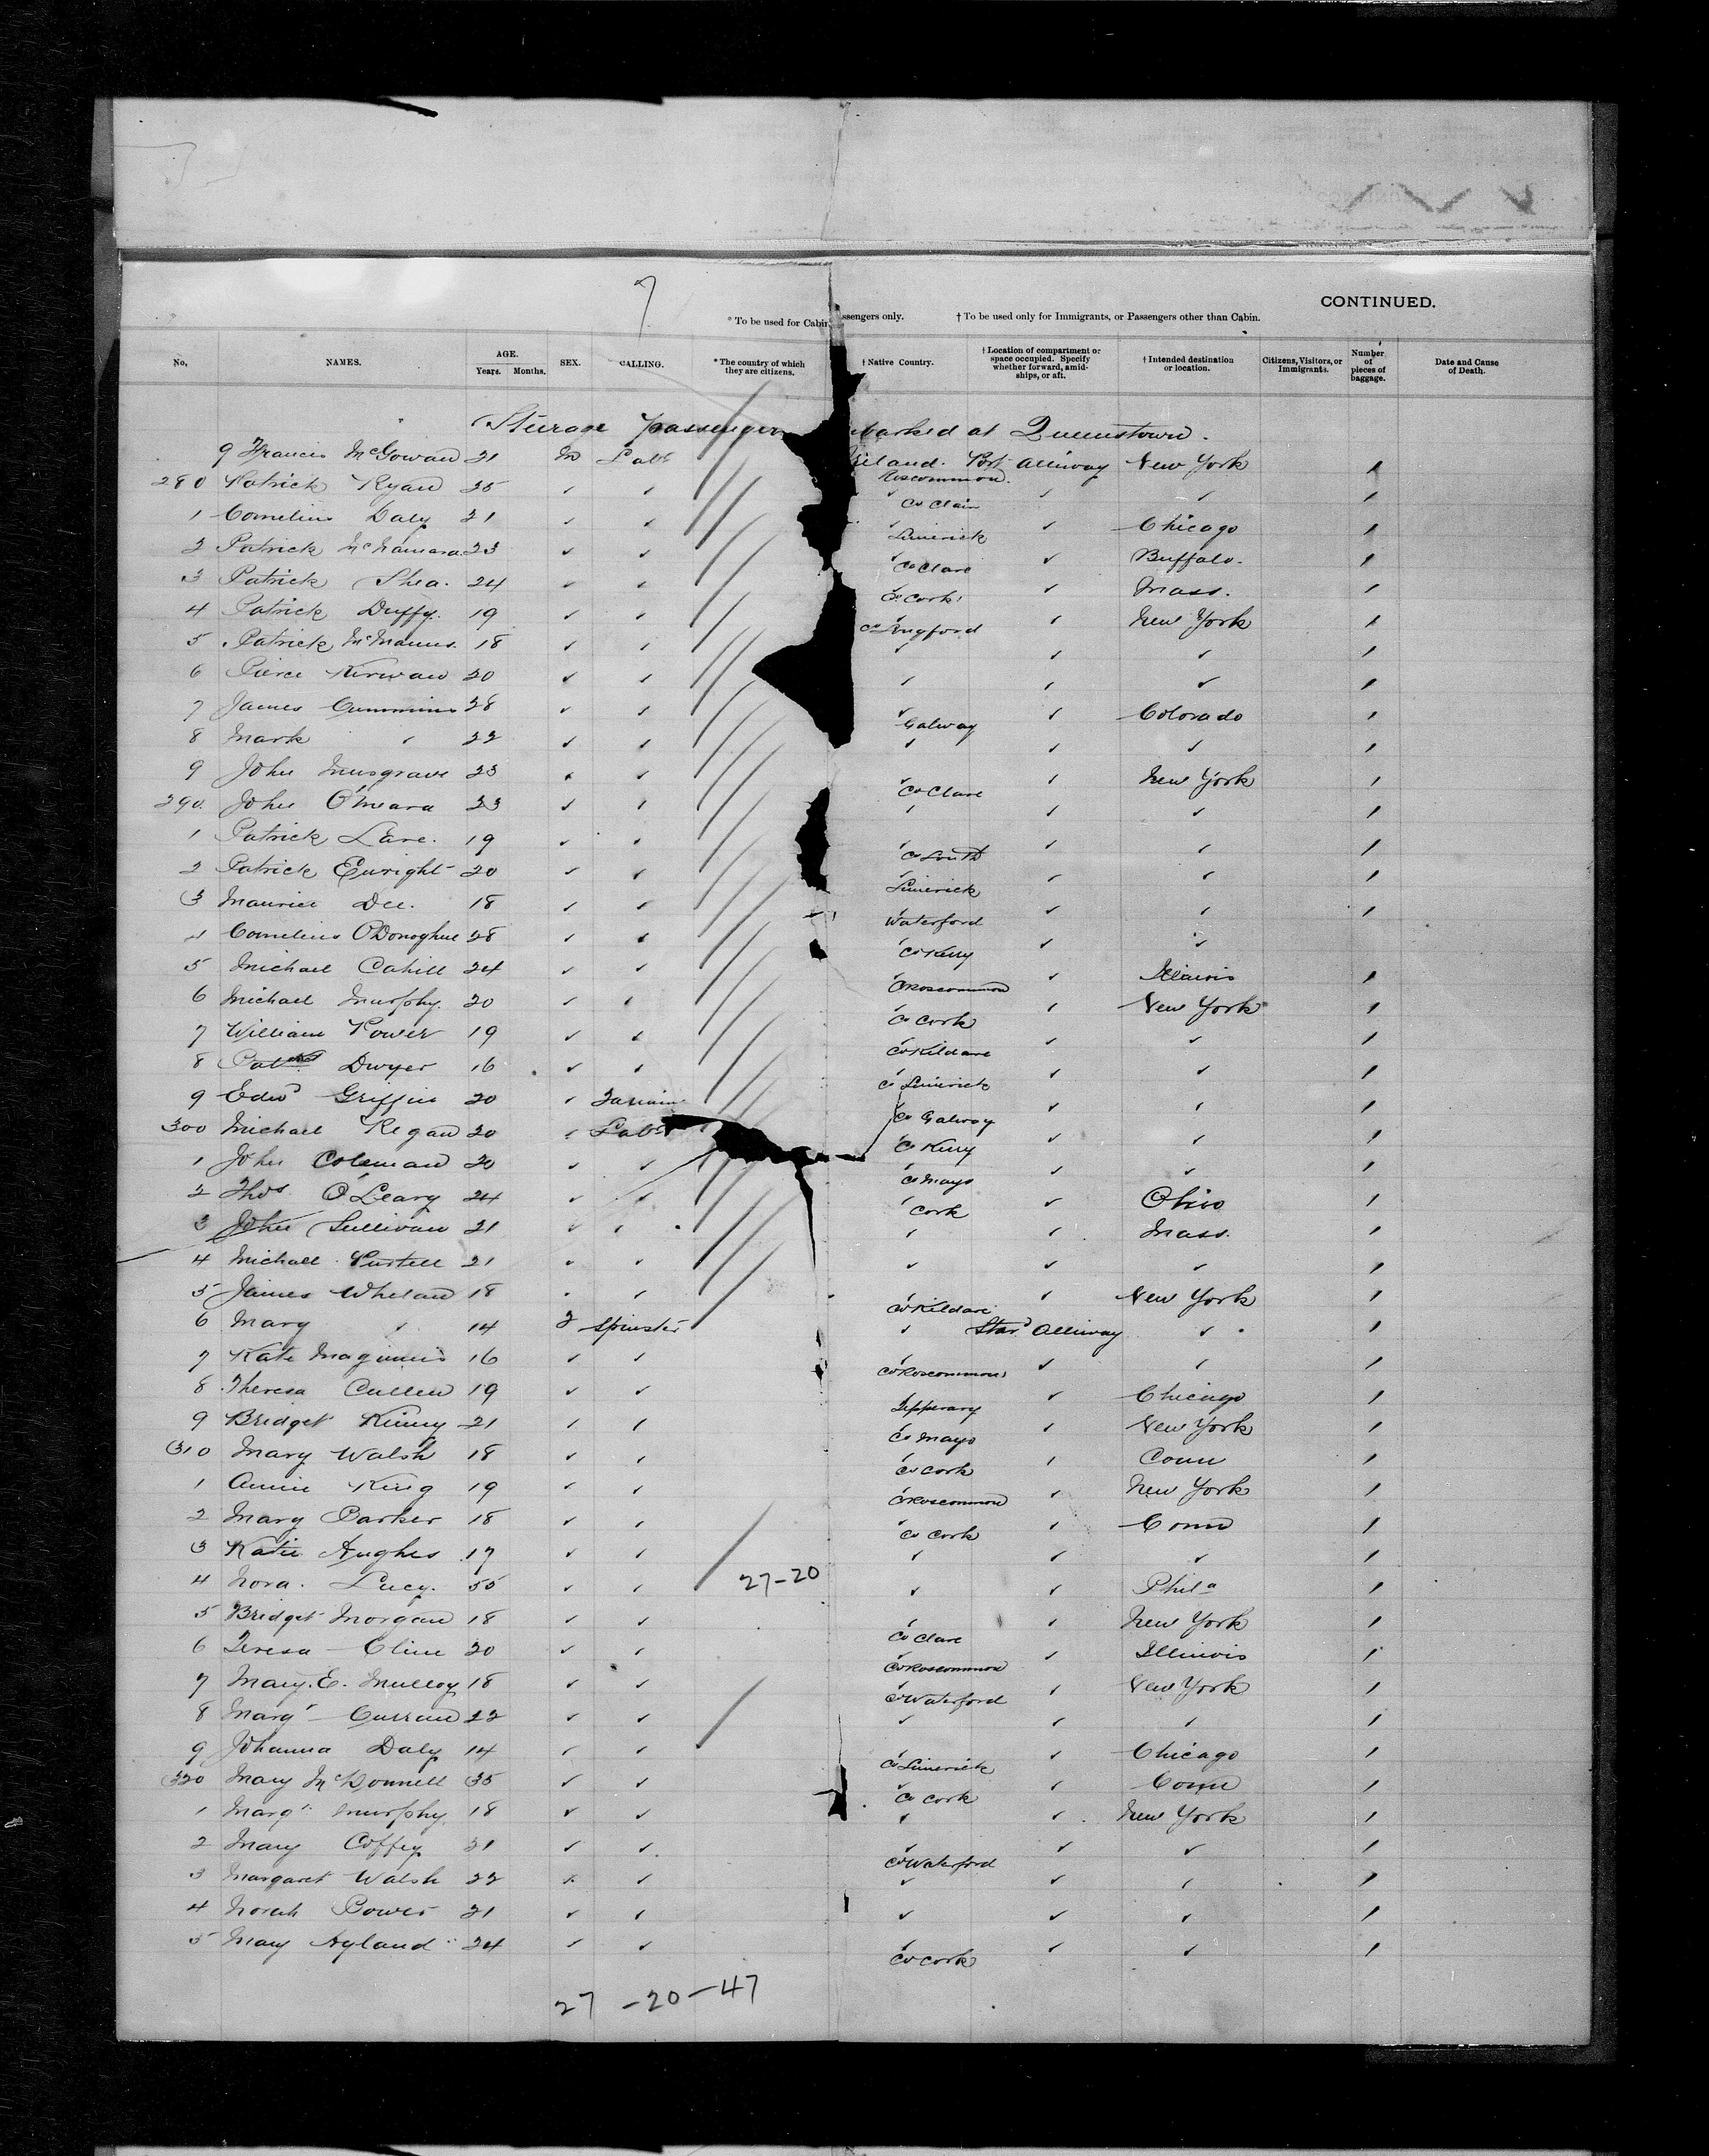 7
CONTINUED.
* To be used for Cabin ssengers only. † To be used only for Immigrants, or Passengers other than Cabin.
No. NAMES. AGE. Years. Months. SEX. CALLING. * The country of which they are citizens. † Native Country. † Location of compartment or space occupied. Specify whether forward, amidships, or aft. † Intended destination or location. Citizens, Visitors, or Immigrants. Number of pieces of baggage. Date and Cause of Death.
Steerage passengers barked at Queenstown.
9 Francis McGowan 21 M Labr reland. Roscommon. Port Alleway New York 1
280 Patrick Ryan 25 ✓ ✓ ✓ Co Clair ✓ ✓ 1
1 Cornelius Daly 21 ✓ ✓ ✓ Limerick ✓ Chicago 1
2 Patrick McNamara 23 ✓ ✓ ✓ Co Clare ✓ Buffalo. 1
3 Patrick Shea. 24 ✓ ✓ ✓ Co Cork ✓ Mass. 1
4 Patrick Duffy. 19 ✓ ✓ ✓ Co Longford ✓ New York 1
5 Patrick McManus. 18 ✓ ✓ ✓ ✓ ✓ 1
6 Pierce Kirwan 20 ✓ ✓ ✓ ✓ ✓ 1
7 James Cummins 28 ✓ ✓ ✓ Galway ✓ Colorado 1
8 Mark ✓ 22 ✓ ✓ ✓ ✓ ✓ 1
9 John Musgrave 23 ✓ ✓ ✓ Co Clare ✓ New York 1
290 John O'Meara 23 ✓ ✓ ✓ ✓ ✓ 1
1 Patrick Lane. 19 ✓ ✓ ✓ Co Louth ✓ ✓ 1
2 Patrick Enright 20 ✓ ✓ ✓ Limerick ✓ ✓ 1
3 Maurice Dee. 18 ✓ ✓ ✓ Waterford ✓ ✓ 1
4 Cornelius O'Donoghue 28 ✓ ✓ ✓ Co Kerry ✓ ✓
5 Michael Cahill 24 ✓ ✓ ✓ Co Roscommon ✓ Illinois 1
6 Michael Murphy. 20 ✓ ✓ ✓ Co Cork ✓ New York 1
7 William Power 19 ✓ ✓ ✓ Co Kildare ✓ ✓ 1
8 Dwyer 16 ✓ ✓ ✓ Co Limerick ✓ ✓ 1
9 Edwd Griffin 20 ✓ ✓ Co Galway ✓ ✓ 1
300 Michael Regan 20 ✓ Labr ✓ Co Kerry ✓ ✓ 1
1 John Coleman 20 ✓ ✓ ✓ Co Mayo ✓ ✓ 1
2 Thos O'Leary 24 ✓ ✓ ✓ Cork ✓ Ohio 1
3 John Sullivan 21 ✓ ✓ ✓ ✓ Mass. 1
4 Michael Purtell 21 ✓ ✓ ✓ ✓ ✓ 1
5 James Whelan 18 ✓ ✓ ✓ Co Kildare ✓ New York 1
6 Mary ✓ 14 F Spinster ✓ Star'd Alleway ✓ 1
7 Kate Maginnis 16 ✓ ✓ ✓ Co Roscommon ✓ ✓ 1
8 Theresa Cullen 19 ✓ ✓ ✓ Tipperary ✓ Chicago 1
9 Bridget Kinny 21 ✓ ✓ ✓ Co Mayo ✓ New York 1
310 Mary Walsh 18 ✓ ✓ ✓ Co Cork ✓ Conn 1
1 Annie King 19 ✓ ✓ ✓ Co Roscommon ✓ New York 1
2 Mary Parker 18 ✓ ✓ ✓ Co Cork ✓ Conn 1
3 Katie Hughes 17 ✓ ✓ ✓ ✓ ✓ 1
4 Nora. Lucy. 55 ✓ ✓ 27-20 ✓ ✓ Phila 1
5 Bridget Morgan 18 ✓ ✓ ✓ Co Clare ✓ New York 1
6 Teresa Cline 20 ✓ ✓ ✓ Co Roscommon ✓ Illinois 1
7 Mary. E. Mulloy 18 ✓ ✓ ✓ Co Waterford ✓ New York 1
8 Margt Curran 22 ✓ ✓ ✓ ✓ ✓ 1
9 Johanna Daly 14 ✓ ✓ ✓ Co Limerick ✓ Chicago 1
320 Mary McDonnell 35 ✓ ✓ ✓ Co Cork ✓ Conn 1
1 Margt Murphy 18 ✓ ✓ ✓ ✓ New York 1
2 Mary Coffey 21 ✓ ✓ ✓ Co Waterford ✓ ✓ 1
3 Margaret Walsh 22 ✓ ✓ ✓ ✓ ✓ 1
4 Norah Power 21 ✓ ✓ ✓ ✓ ✓ 1
5 Mary Hyland 24 ✓ ✓ ✓ Co Cork ✓ ✓ 1
27 -20-47